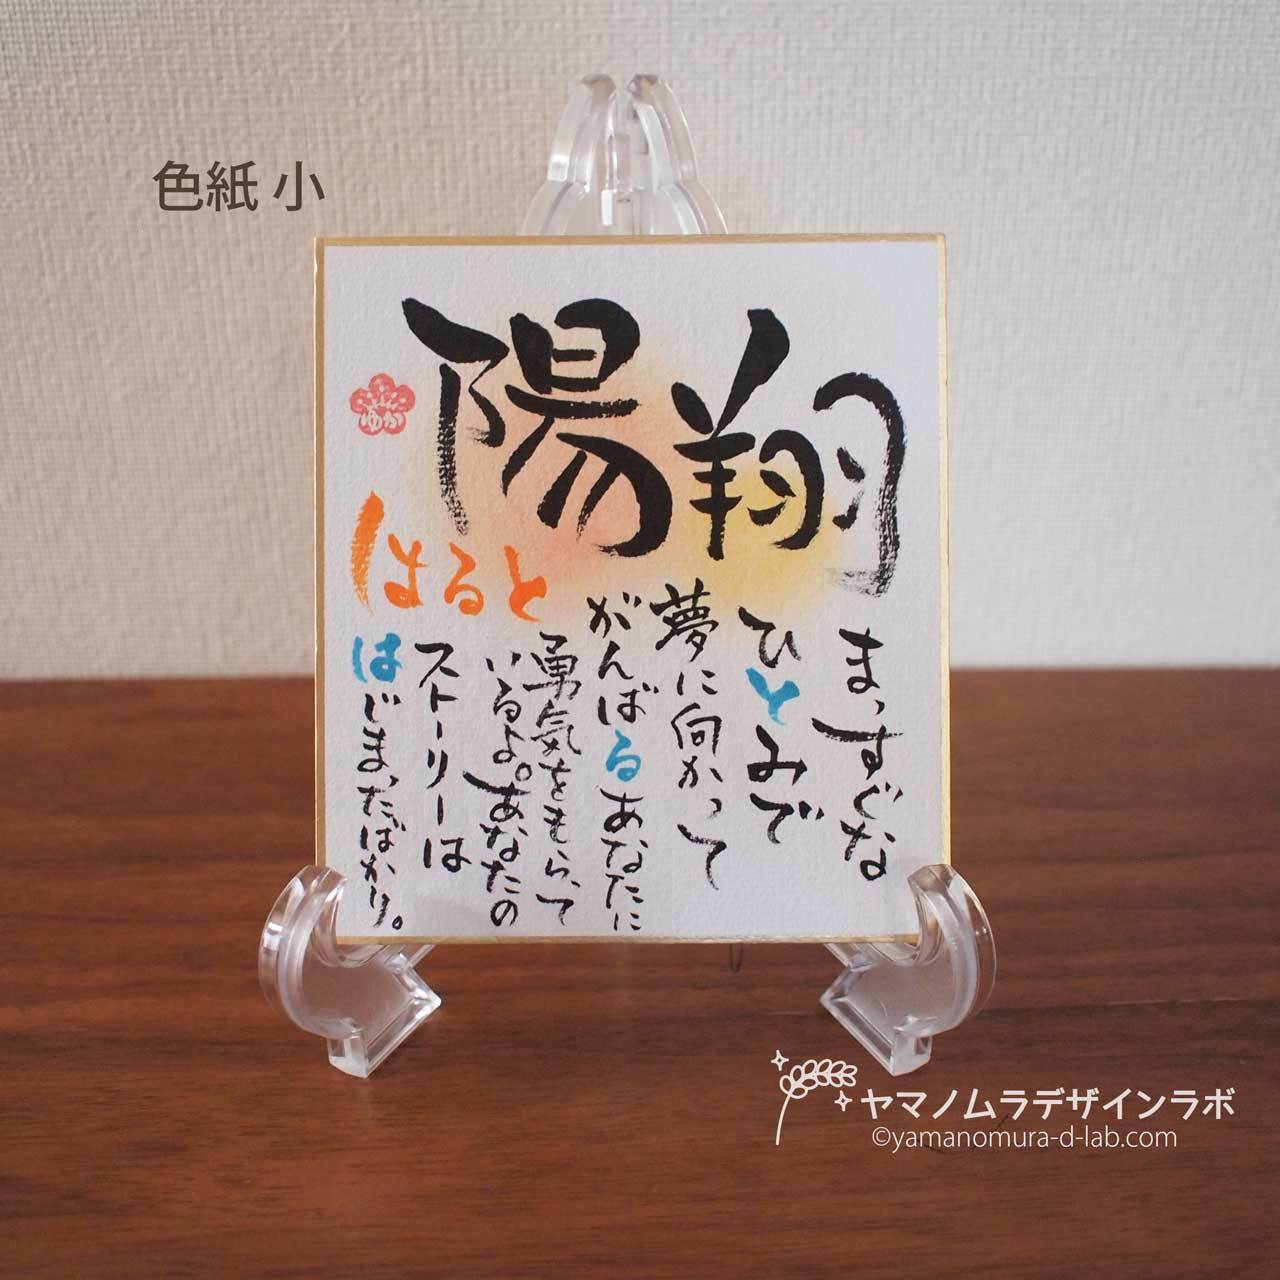 色紙 小
陽翔
ゆか
はると
まっすぐな
ひとみで
夢に向かって
がんばるあなたに
勇気をもらって
いるよ。あなたの
ストーリーは
はじまったばかり。
ヤマノムラデザインラボ
©yamanomura-d-lab.com